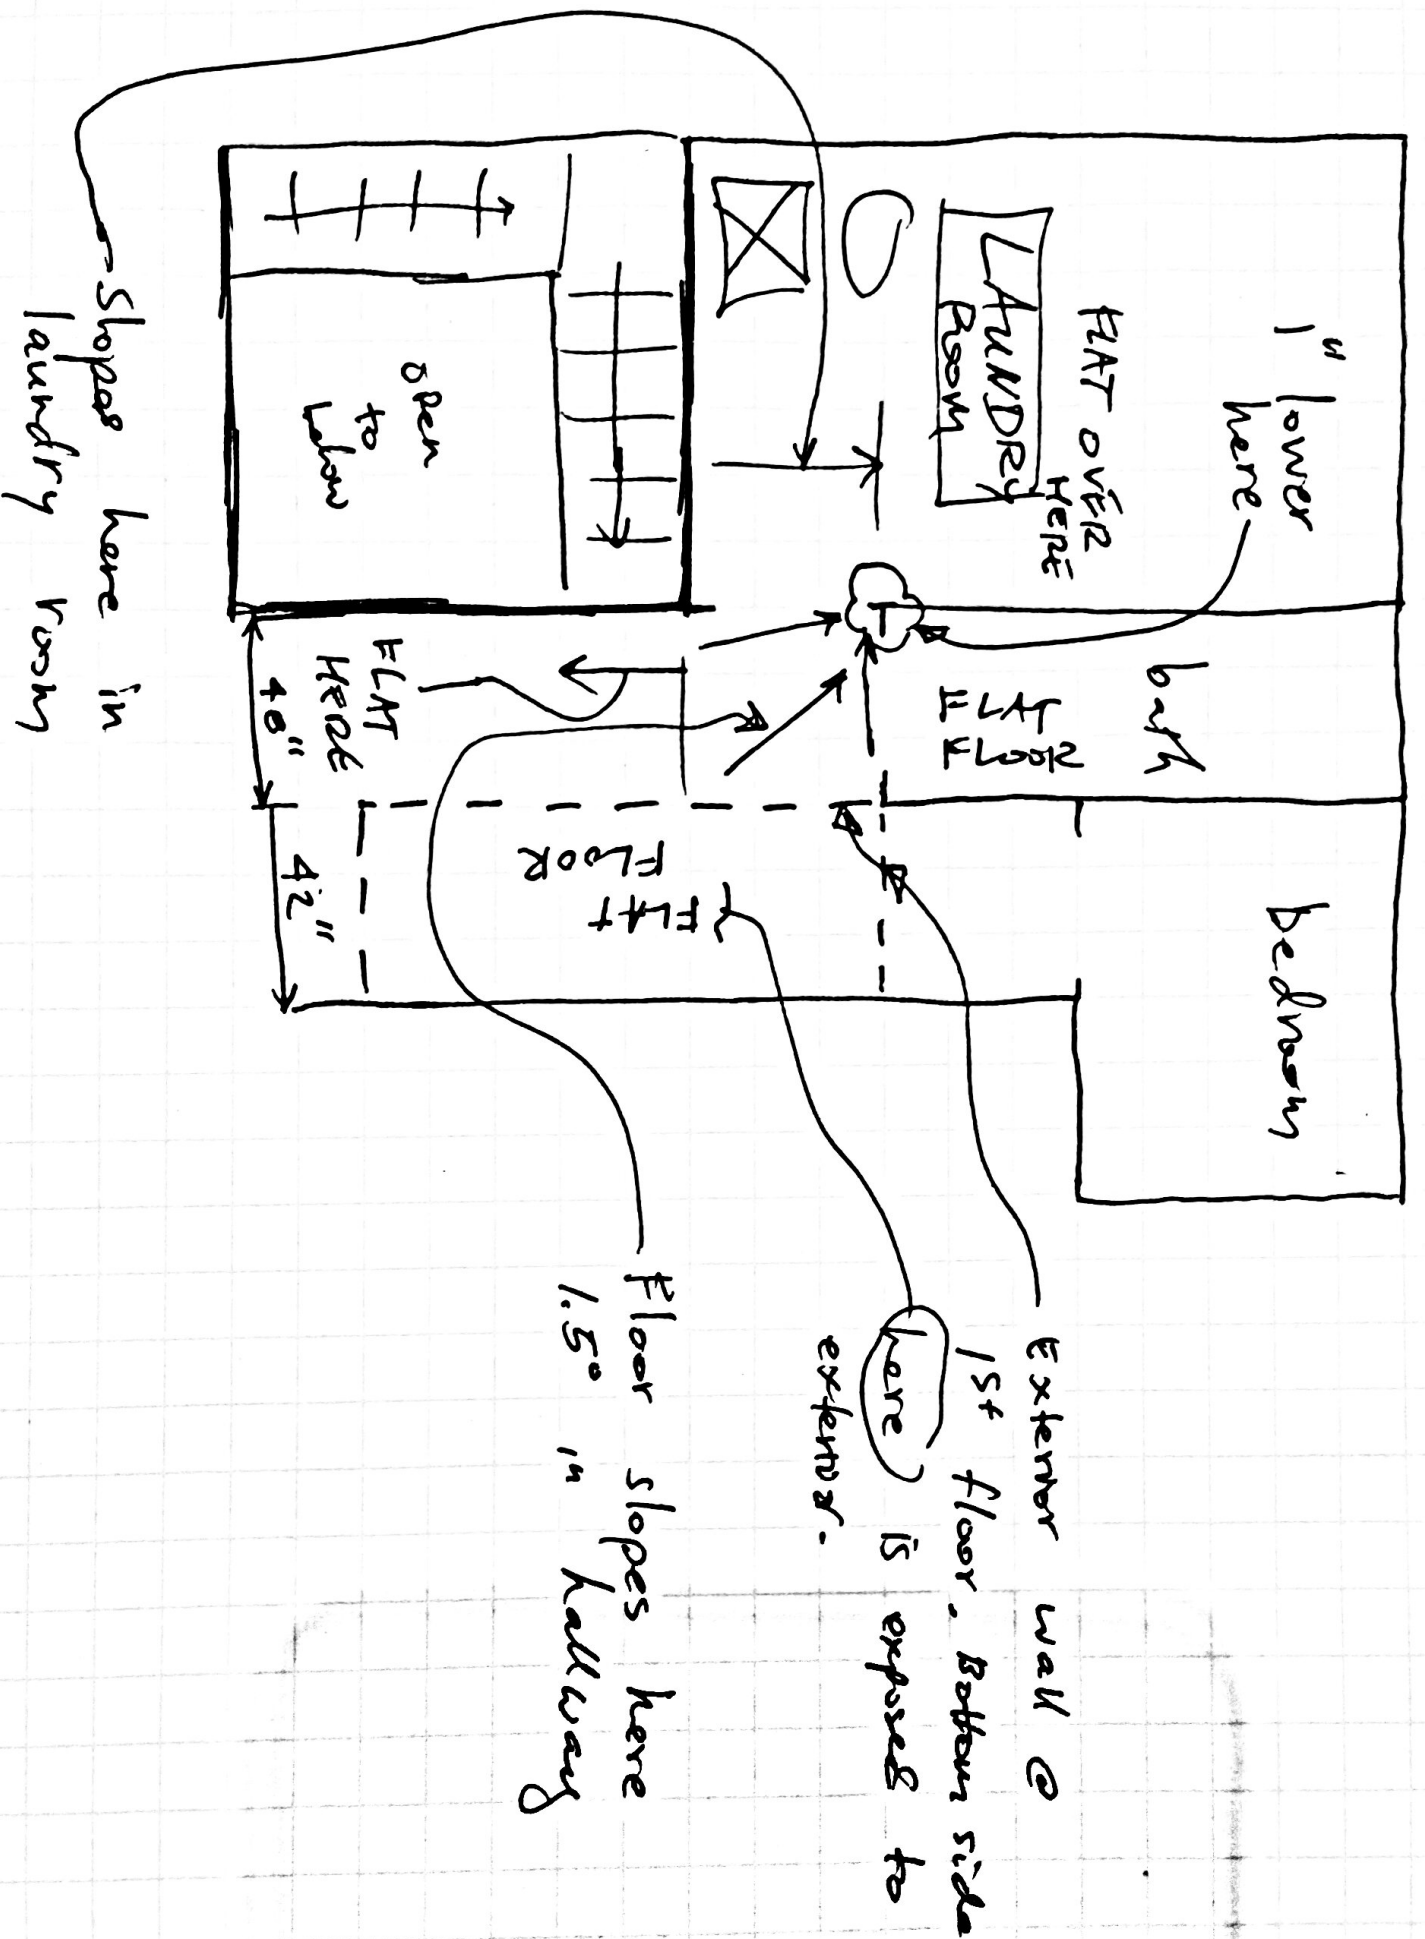 1" lower
here
FLAT OVER
HERE
LAUNDRY
ROOM
bath
FLAT
FLOOR
bedroom
open
to
below
FLAT
HERE
40"
42"
FLAT
FLOOR
Slopes here in
laundry room
Exterior wall @
1st floor. Bottom side
here is exposed to
exterior.
Floor slopes here
1.5° in hallway